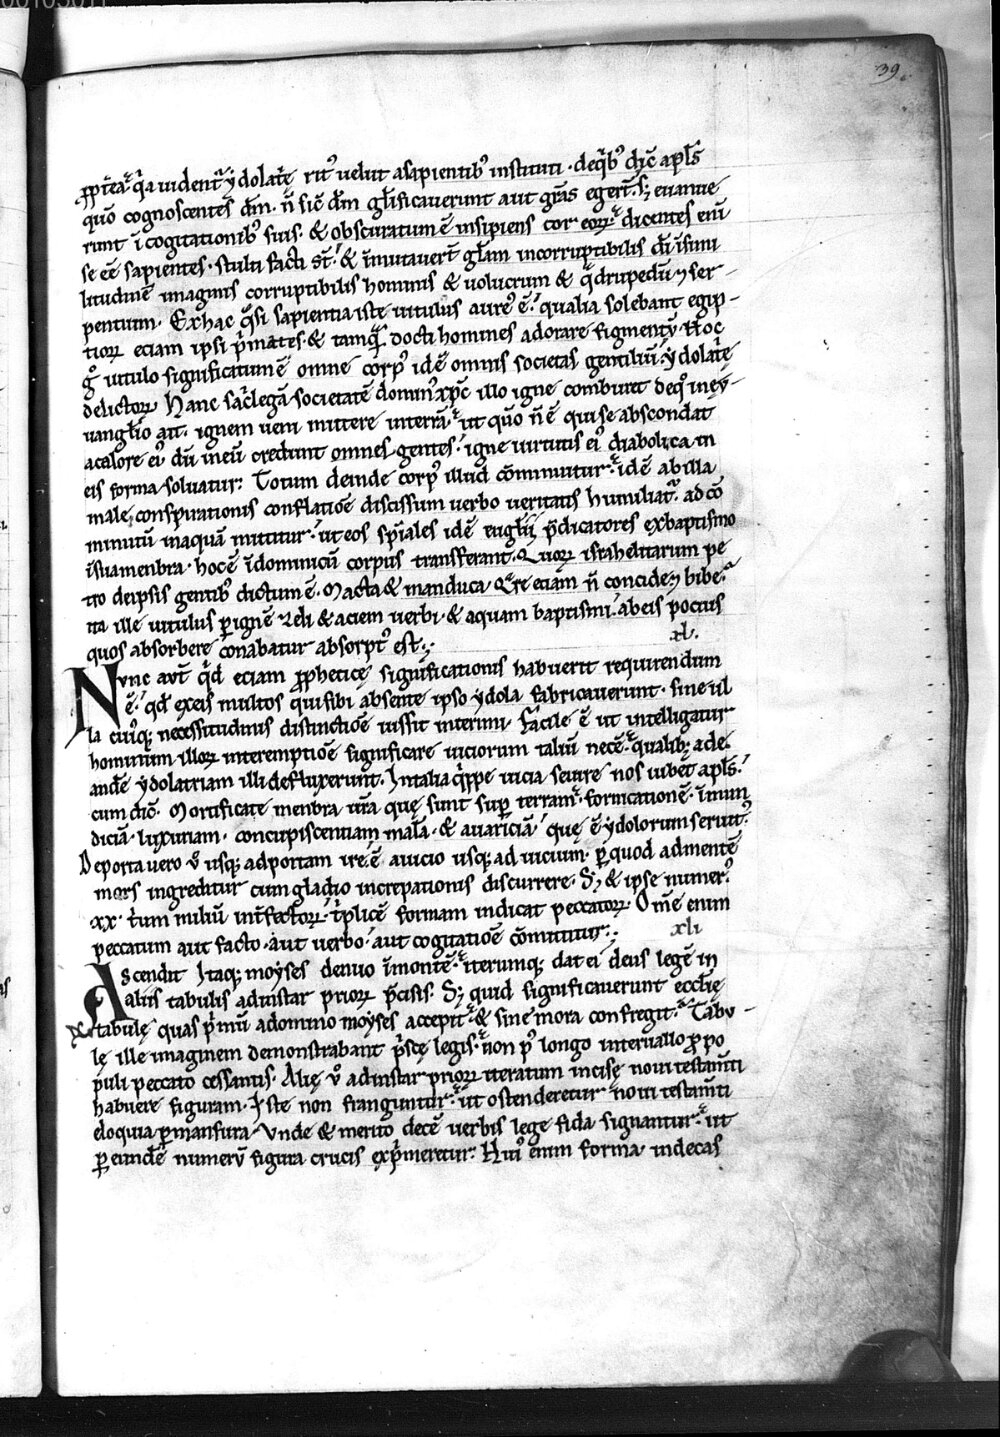 39
ꝓpt̄ea q̇a uident᷑ ydolatrę rit᷒ uelut asapientib᷒ instituti · deq̇b᷒ dic̄ apl̄s
quō cognoscentes dm̄ · n̄ sic̄ dm̄ gl̄ificauerunt aut gr̄as egert̄ · sꝫ euanue
runt ī cogitationib᷒ suis · & obscuratum ē insipiens cor eoꝝ · dicentes eni
se eē sapientes · stulti facti st̄ · & īmutauert̄ gl̄am incorruptibilis dī īsimi
litudinē imaginis corruptibilis hominis & uolucrum & q̇drupedū ⁊ ser-
pentium · Exhac q̇si sapientia iste uitulus aure᷒ ē · qualia solebant egip-
tioꝝ eciam ipsi p̄mates · & tamq̄ docti homines adorare figmenty · Hoc
g̊ uitulo significatum ē omne corp᷒ idē omnis societas gentiliū ydolatrę
delictoꝝ Hanc sac̓legā societatē domin᷒ xp̄c illo igne comburit deq̊ ineu-
uangl̄io ait · ignem ueni mittere interrā · ut quō n̄ ē qui se abscondat
acalore ei᷒ dū ineū credunt omnes gentes · igne uirtutis ei᷒ diabolica in
eis forma soluatur · Totum deinde corp᷒ illud cōminuitur · idē abilla
male conspirationis conflatiōe discissum uerbo ueritatis humiliat᷑ · ad cō
minutū inaquā mittitur · ut eos spiales idē eugl̄ii p̄dicatores exbaptismo
īsua menbra · hoc ē īdominicū corpus transferant · Quoꝝ israhelitarum pe
tro deipsis gentib᷒ dictum ē · Macta & manduca · Q̄re eciam n̄ concide ⁊ bibe ·
ita ille uitulus ꝑ ignē zeli & aciem uerbi · & aquam baptismi · abeis pocius
quos absorbere conabatur absorpt᷒ est · xl·
Nunc aut̄ q̇d eciam ꝓpheticę significationis habuerit requirendum
ē · qd̄ exeis multos quisibi absente ipso ydola fabricauerunt · sine ul
la cuiq̇ꝫ necessitudinis distinctiōe iussit interimi · Facile ē ut intelligatur
hominum illoꝝ interemptiōe significare uiciorum taliū necē · qualibꝫ acie-
andē ydolatriam illi defluxerunt · Intalia q̇ppe uicia seuire nos iubet apl̄s ·
cum dic̄ · Mortificate menbra ur̄a quę sunt sup̄ terram · fornicationē · īmun
diciā · luxuriam · concupiscentiam malā · & auariciā · quę ē ydolorum seruit᷒
De porta uero ů usqꝫ adportam ire · ē auicio usqꝫ ad uicium · ꝑ quod admentē
mors ingreditur cum gladio increpationis discurrere · Sꝫ & ipse numer᷒
xx · trium miliū int̄fectoꝝ · tplicē formam indicat peccatoꝝ · Om̄e enim
peccatum aut facto · aut uerbo · aut cogitatiōe cōmittitur · xli
Ascendit Itaqꝫ moyses denuo īmontē · iterumqꝫ dat ei deus legē in
aliis tabulis adinstar prioꝝ p̄cisis · Sꝫ quid significauerunt eccl̄ię
tabulę quas p̄mū adomino moyses accepit · & sine mora confregit · Tabu-
lę ille imaginem demonstrabant p̄scę legis · non p᷒ longo interuallo ꝓpo
puli peccato cessantis · Alię ů adinstar prioꝝ iteratum incisę noui testam̄ti
habuere figuram · Iste non franguntur · ut ostenderetur noui testam̄ti
eloquia ꝑmansura · Vnde & merito decē uerbis lege fida signantur · ut
ꝑ eundē numerū figura crucis exp̄meretur · Hui᷒ enim forma indecas